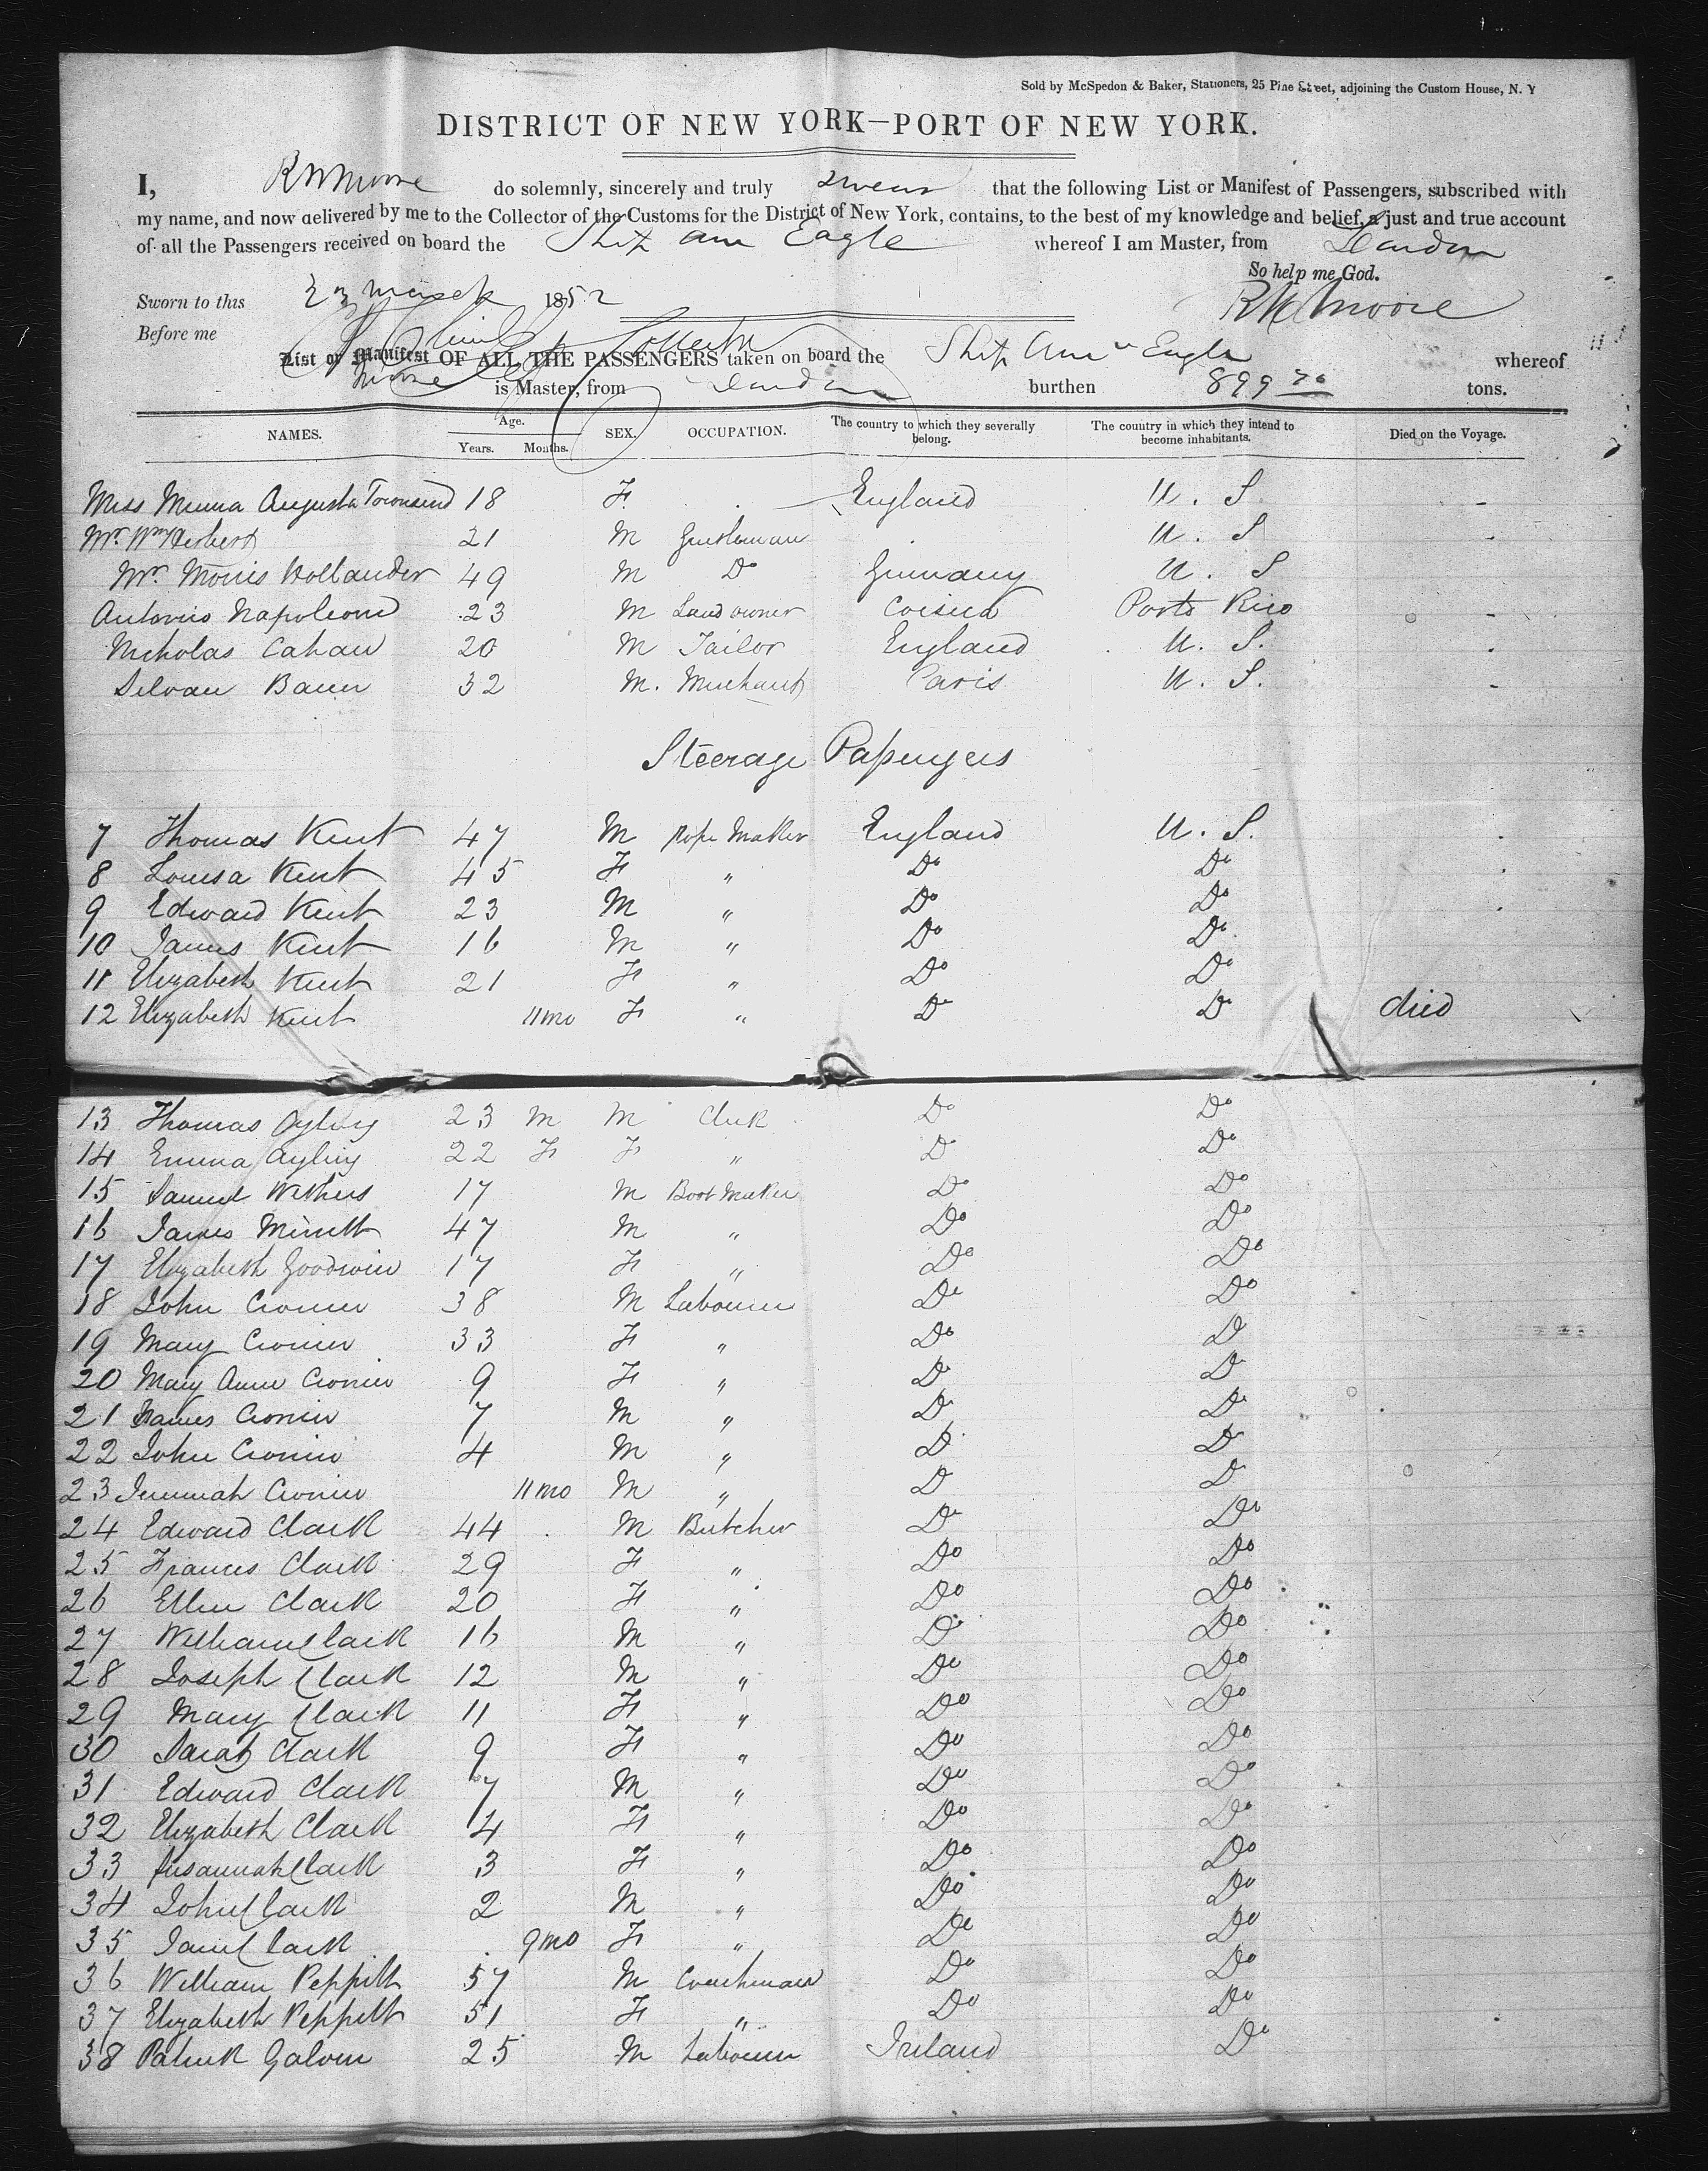 Sold by McSpedon & Baker, Stationers, 25 Pine Street, adjoining the Custom House, N. Y
DISTRICT OF NEW YORK—PORT OF NEW YORK.
I, R W Moore do solemnly, sincerely and truly swear that the following List or Manifest of Passengers, subscribed with
my name, and now delivered by me to the Collector of the Customs for the District of New York, contains, to the best of my knowledge and belief, a just and true account
of all the Passengers received on board the Ship Am Eagle whereof I am Master, from London
So help me God.
Sworn to this March 1852 Moore
Before me
List or Manifest OF ALL THE PASSENGERS taken on board the Ship Amn Eagle whereof
Moore is Master, from London burthen 899 tons.
NAMES. Age. Years. Months. SEX. OCCUPATION. The country to which they severally belong. The country in which they intend to become inhabitants. Died on the Voyage.
Miss Augusta Townsend 18 F England U. S.
Mr. Wm Herbert 21 M Gentleman U. S
Mr. Morris Hollander 49 M Do Germany U. S
Antonio Napoleoni 23 M Land owner Corsica Porto Rico
Nicholas Cahau 20 M Tailor England U. S.
Baun 32 M. Merchant Paris U. S.
Steerage Passengers
7 Thomas Kent 47 M Rope Maker England U. S.
8 Louisa Kent 45 F " Do Do
9 Edward Kent 23 M " Do Do
10 James Kent 16 M " Do Do
11 Elizabeth Kent 21 F " Do Do
12 Elizabeth Kent 11 mo F " Do Do died
13 Thomas Ayling 23 M M Clerk Do Do
14 Emma Ayling 22 F F " Do Do
15 Samuel Withers 17 M Boot Maker Do Do
16 James 47 M " Do Do
17 Elizabeth Goodwin 17 F " Do Do
18 John Cronin 38 M Labourer Do Do
19 Mary Cronin 33 F " Do Do
20 Mary Anne Cronin 9 F " Do Do
21 James Cronin 7 M " Do Do
22 John Cronin 4 M " Do Do
23 Jeremiah Cronin 11 mo M " Do Do
24 Edward Clark 44 M Butcher Do Do
25 Frances Clark 29 F " Do Do
26 Ellen Clark 20 F " Do Do
27 William Clark 16 M " Do Do
28 Joseph Clark 12 M " Do Do
29 Mary Clark 11 F " Do Do
30 Sarah Clark 9 F " Do Do
31 Edward Clark 7 M " Do Do
32 Elizabeth Clark 4 F " Do Do
33 Susannah Clark 3 F " Do Do
34 John Clark 2 M " Do Do
35 Jane Clark 9 mo F " Do Do
36 William Peppitt 57 M Coachman Do Do
37 Elizabeth Peppitt 51 F " Do Do
38 Patrick Galvin 25 M Labourer Ireland Do